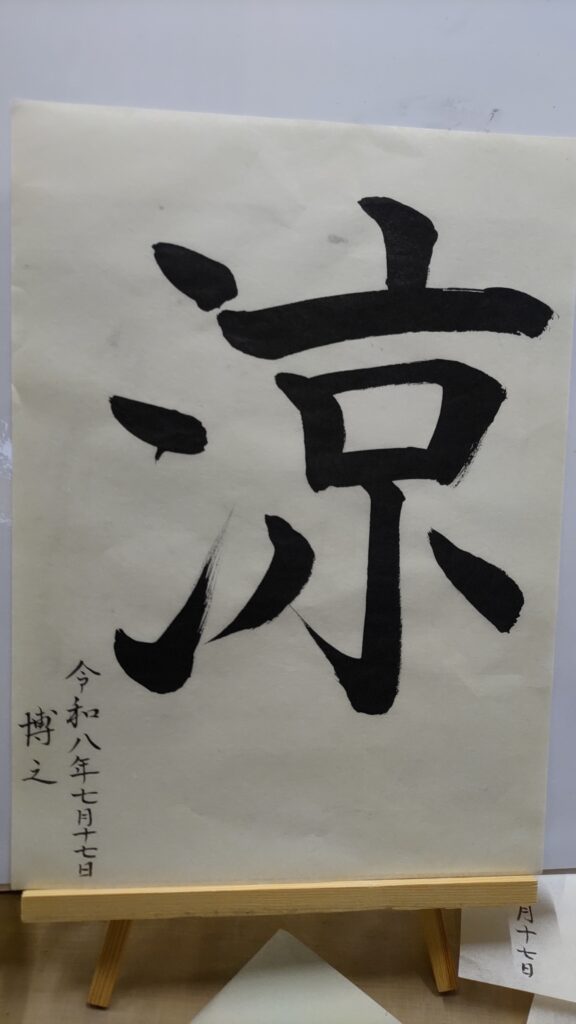 涼
令和八年七月十七日
博之
月十七日